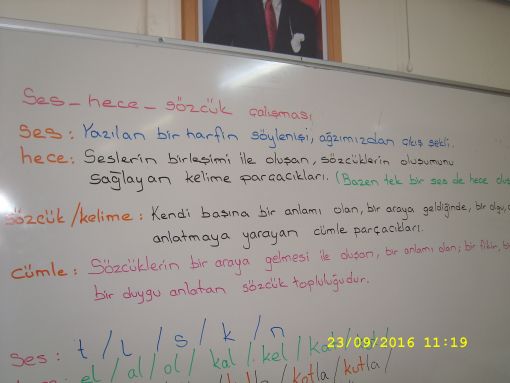 Ses - hece - sözcük çalışması
Ses: Yazılan bir harfin söylenişi, ağzımızdan çıkış şekli.
hece: Seslerin birleşimi ile oluşan, sözcüklerin oluşumunu
sağlayan kelime parçacıkları. (Bazen tek bir ses de hece
sözcük/kelime: Kendi başına bir anlamı olan, bir araya geldiğinde, bir olgu,
anlatmaya yarayan cümle parçacıkları.
cümle: Sözcüklerin bir araya gelmesi ile oluşan, bir anlamı olan; bir fikir,
bir duygu anlatan sözcük topluluğudur.
Ses: t / L / s / k / n
el / al / ol / kal / kel /
kutla /
23/09/2016 11:19